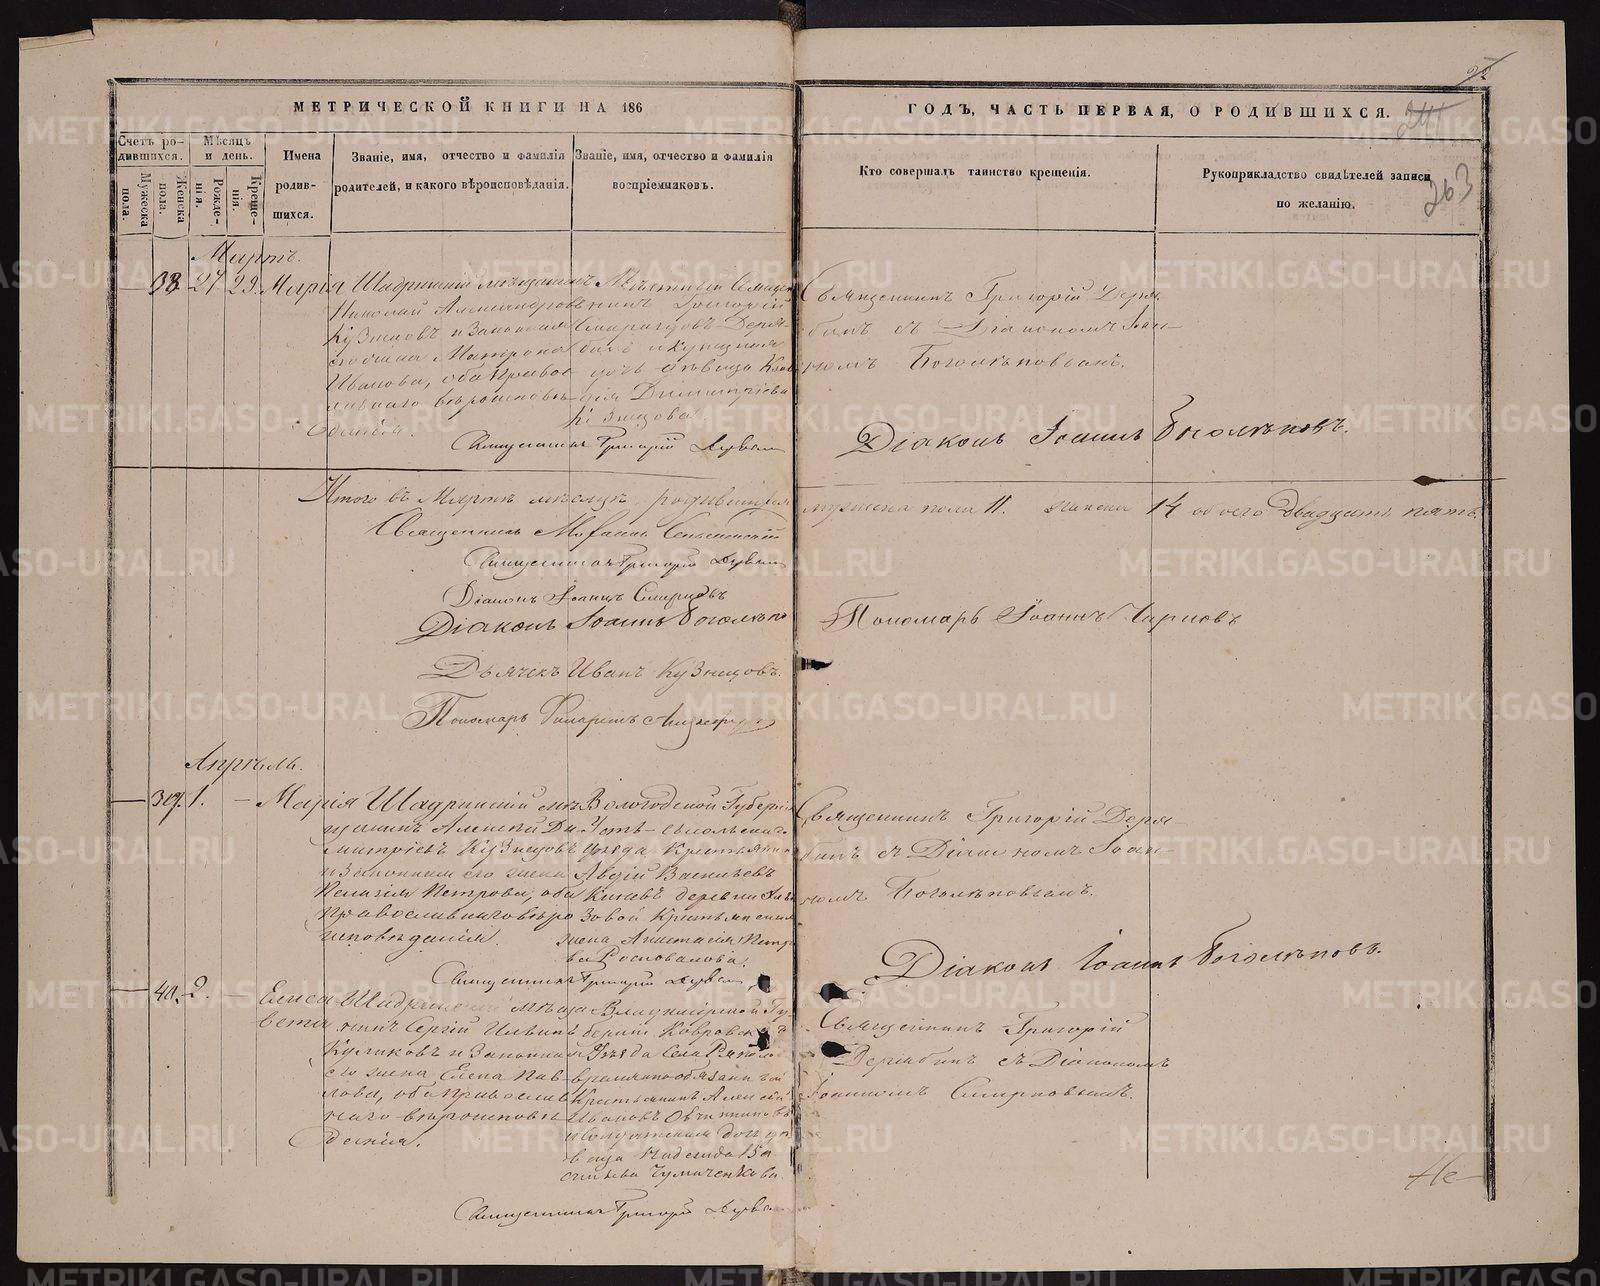 МЕТРИЧЕСКОЙ КНИГИ НА 186
ГОДЪ, ЧАСТЬ ПЕРВАЯ, О РОДИВШИХСЯ.
263
Счетъ ро-
дившихся.
Мужеска пола.
Женска пола.
Мѣсяцъ
и день.
Рожде-
нія.
Креще-
нія.
Имена
родив-
шихся.
Званіе, имя, отчество и фамилія
родителей, и какого вѣроисповѣданія.
Званіе, имя, отчество и фамилія
воспріемниковъ.
Кто совершалъ таинство крещенія.
Рукоприкладство свидѣтелей записи
по желанію.
Мартъ.
38. 27 29. Марія
Шадринскій мѣщанинъ
Николай Александровъ
Кузнецовъ и законная
его жена Матрона
Иванова, оба православ-
наго вѣроисповѣ-
данія.
Мѣстный Священ-
никъ Григорій
Дерябинъ и купецкая
дочь дѣвица Клав-
дія Димитріева
Кузнецова.
Священникъ Григорій Деря-
бинъ съ Діакономъ Іоан-
номъ Боголѣповымъ.
Священникъ Григорій Дерябинъ
Діаконъ Іоаннъ Боголѣповъ.
Итого въ Мартѣ мѣсяцѣ родившихся
мужеска пола 11. женска 14 обоего двадцать пять.
Священникъ
Священникъ Григорій Дерябинъ
Діаконъ Іоаннъ Смирновъ
Діаконъ Іоаннъ Боголѣпо
Пономарь Іоаннъ Чирковъ
Дьячекъ Иванъ Кузнецовъ.
Пономарь Филаретъ
Апрѣль.
39. 1. — Марія
Шадринскій мѣ-
щанинъ Алексѣй Ди-
митріевъ Кузнецовъ
и законная его жена
Пелагія Петрова, оба
православнаго вѣро-
исповѣданія.
Вологодской Губерніи
Усть-сысольскаго
уѣзда Крестьянинъ
Авдій Васильевъ
деревни
Крестьянская
жена Анастасія Петро-
ва
Священникъ Григорій Деря-
бинъ съ Діакономъ Іоан-
номъ Боголѣповымъ.
Священникъ Григорій Дерябинъ
Діаконъ Іоаннъ Боголѣповъ.
40. 2. — Елиса-
вета
Шадринскій мѣща-
нинъ Сергій Ильинъ
Куликовъ и законная
его жена Елена Пав-
лова, оба православ-
наго вѣроисповѣ-
данія.
Владимірской Гу-
берніи Ковровскаго
уѣзда Села
временнообязанный
Крестьянинъ Алексѣй
Ивановъ Овчинниковъ
и Солдатская дочь дѣ-
вица Надежда
Чумаченкова.
Священникъ Григорій
Дерябинъ съ Діакономъ
Іоанномъ Смирновымъ.
Священникъ Григорій Дерябинъ
METRIKI.GASO-URAL.RU